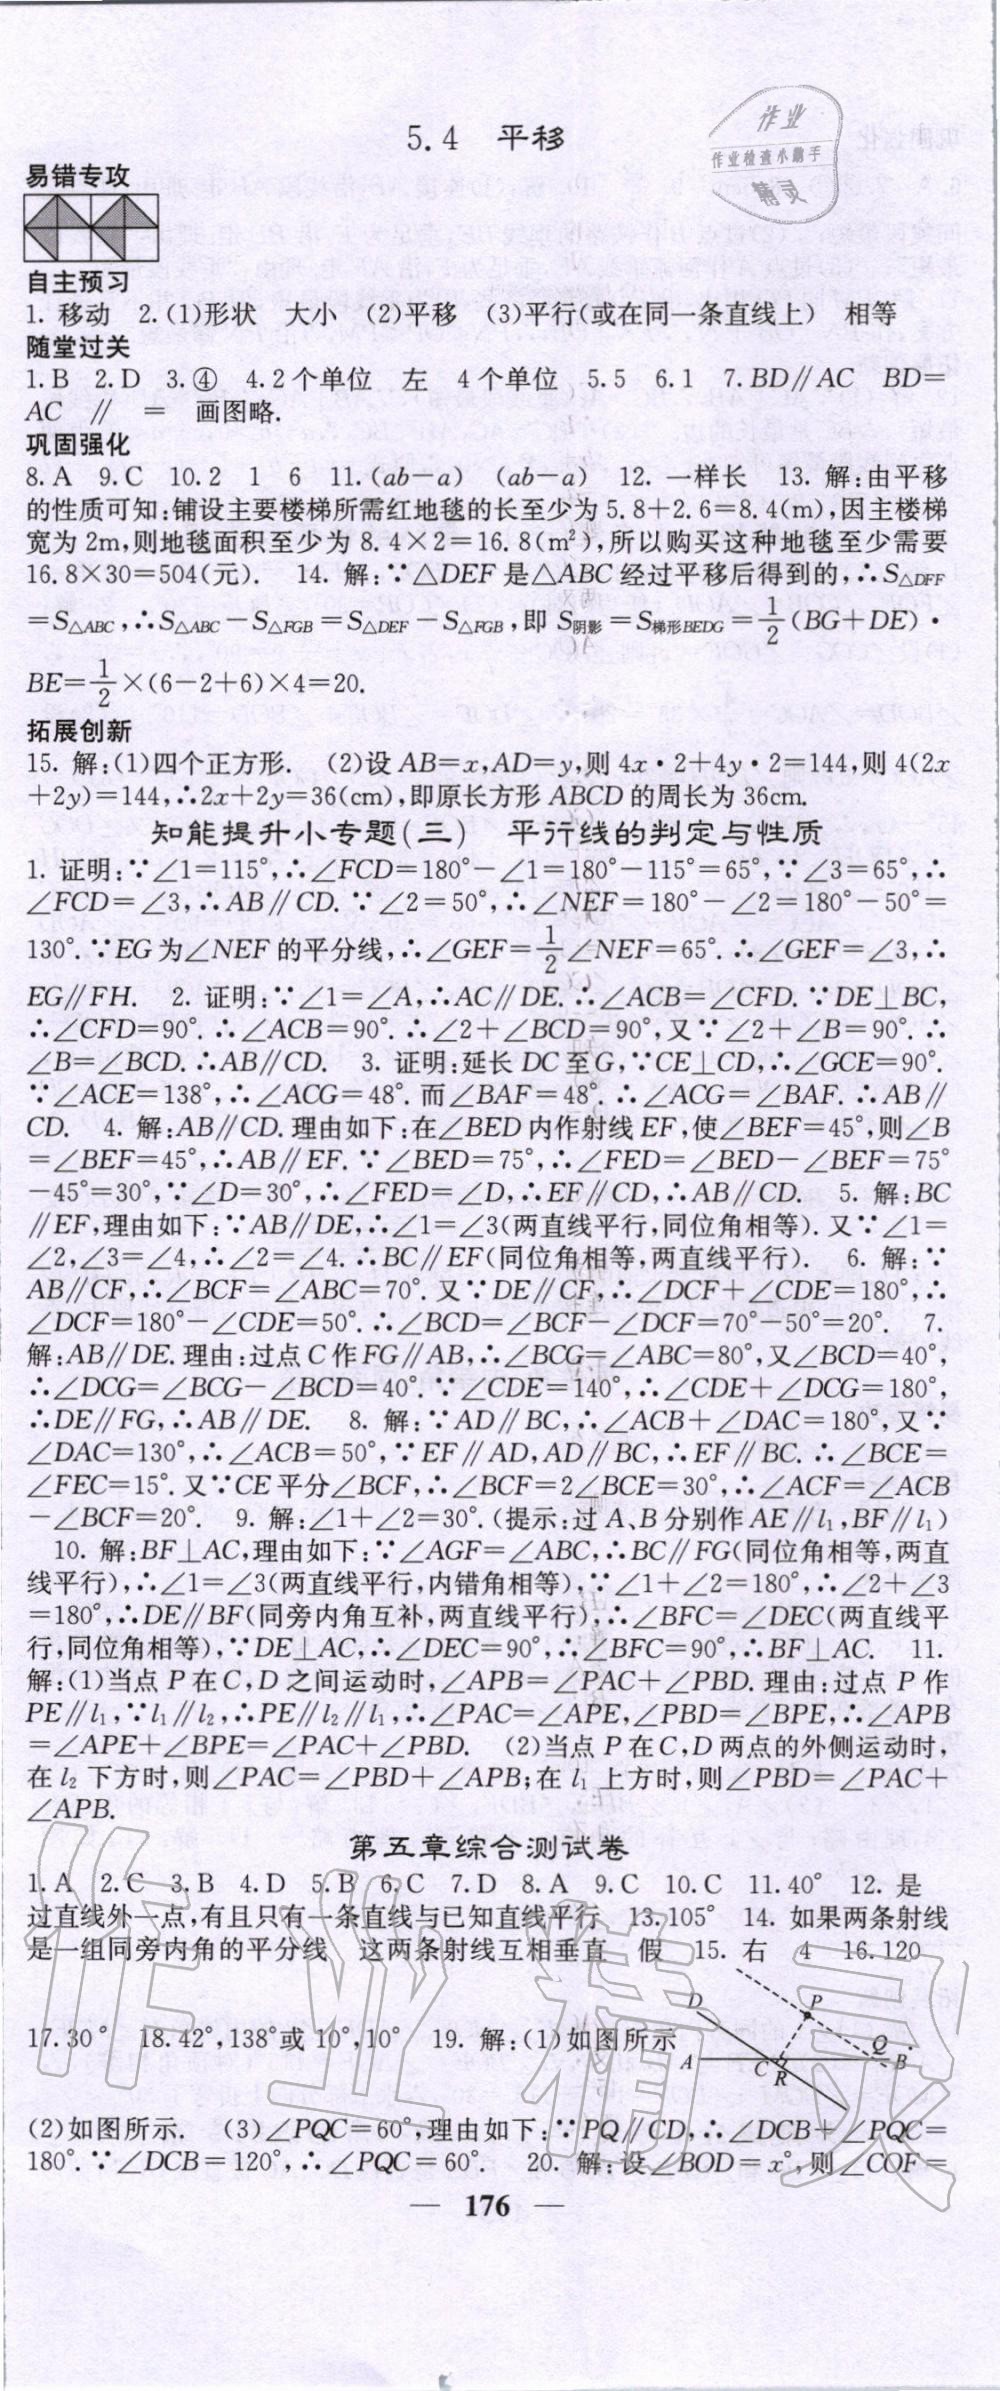 5.4 平移
作业
作业检查小助手
精灵
易错专攻
自主预习
1. 移动 2.(1)形状 大小 (2)平移 (3)平行(或在同一条直线上) 相等
随堂过关
1.B 2.D 3.④ 4.2个单位 左 4个单位 5.5 6.1 7.BD∥AC BD=
AC ∥ = 画图略.
巩固强化
8.A 9.C 10.2 1 6 11.(ab-a) (ab-a) 12. 一样长 13. 解:由平移
的性质可知:铺设主要楼梯所需红地毯的长至少为5.8+2.6=8.4(m),因主楼梯
宽为2m,则地毯面积至少为8.4×2=16.8(m²),所以购买这种地毯至少需要
16.8×30=504(元). 14. 解:∵△DEF是△ABC经过平移后得到的,∴S△DFF
=S△ABC,∴S△ABC-S△FGB=S△DEF-S△FGB,即S阴影=S梯形BEDG=1/2(BG+DE)·
BE=1/2×(6-2+6)×4=20.
拓展创新
15. 解:(1)四个正方形. (2)设AB=x,AD=y,则4x·2+4y·2=144,则4(2x
+2y)=144,∴2x+2y=36(cm),即原长方形ABCD的周长为36cm.
知能提升小专题(三) 平行线的判定与性质
1. 证明:∵∠1=115°,∴∠FCD=180°-∠1=180°-115°=65°,∵∠3=65°,∴
∠FCD=∠3,∴AB∥CD.∵∠2=50°,∴∠NEF=180°-∠2=180°-50°=
130°.∵EG为∠NEF的平分线,∴∠GEF=1/2∠NEF=65°.∴∠GEF=∠3,∴
EG∥FH. 2. 证明:∵∠1=∠A,∴AC∥DE.∴∠ACB=∠CFD.∵DE⊥BC,
∴∠CFD=90°.∴∠ACB=90°.∴∠2+∠BCD=90°,又∵∠2+∠B=90°.∴
∠B=∠BCD.∴AB∥CD. 3. 证明:延长DC至G,∵CE⊥CD,∴∠GCE=90°.
∵∠ACE=138°,∴∠ACG=48°.而∠BAF=48°.∴∠ACG=∠BAF.∴AB∥
CD. 4. 解:AB∥CD.理由如下:在∠BED内作射线EF,使∠BEF=45°,则∠B
=∠BEF=45°,∴AB∥EF.∵∠BED=75°,∴∠FED=∠BED-∠BEF=75°
-45°=30°,∵∠D=30°,∴∠FED=∠D,∴EF∥CD,∴AB∥CD. 5. 解:BC
∥EF,理由如下:∵AB∥DE,∴∠1=∠3(两直线平行,同位角相等).又∵∠1=
∠2,∠3=∠4,∴∠2=∠4.∴BC∥EF(同位角相等,两直线平行). 6. 解:∵
AB∥CF,∴∠BCF=∠ABC=70°.又∵DE∥CF,∴∠DCF+∠CDE=180°,∴
∠DCF=180°-∠CDE=50°.∴∠BCD=∠BCF-∠DCF=70°-50°=20°. 7.
解:AB∥DE.理由:过点C作FG∥AB,∴∠BCG=∠ABC=80°,又∠BCD=40°,
∴∠DCG=∠BCG-∠BCD=40°.∵∠CDE=140°,∴∠CDE+∠DCG=180°,
∴DE∥FG,∴AB∥DE. 8. 解:∵AD∥BC,∴∠ACB+∠DAC=180°,又∵
∠DAC=130°,∴∠ACB=50°,∵EF∥AD,AD∥BC,∴EF∥BC.∴∠BCE=
∠FEC=15°.又∵CE平分∠BCF,∴∠BCF=2∠BCE=30°,∴∠ACF=∠ACB
-∠BCF=20°. 9. 解:∠1+∠2=30°.(提示:过A、B分别作AE∥l₁,BF∥l₁)
10. 解:BF⊥AC,理由如下:∵∠AGF=∠ABC,∴BC∥FG(同位角相等,两直
线平行),∴∠1=∠3(两直线平行,内错角相等),∵∠1+∠2=180°,∴∠2+∠3
=180°,∴DE∥BF(同旁内角互补,两直线平行),∴∠BFC=∠DEC(两直线平
行,同位角相等),∵DE⊥AC,∴∠DEC=90°,∴∠BFC=90°,∴BF⊥AC. 11.
解:(1)当点P在C,D之间运动时,∠APB=∠PAC+∠PBD.理由:过点P作
PE∥l₁,∵l₁∥l₂,∴PE∥l₂∥l₁,∴∠PAC=∠APE,∠PBD=∠BPE,∴∠APB
=∠APE+∠BPE=∠PAC+∠PBD. (2)当点P在C,D两点的外侧运动时,
在l₂下方时,则∠PAC=∠PBD+∠APB;在l₁上方时,则∠PBD=∠PAC+
∠APB.
第五章综合测试卷
1.A 2.C 3.B 4.D 5.B 6.C 7.D 8.A 9.C 10.C 11.40° 12. 是
过直线外一点,有且只有一条直线与已知直线平行 13.105° 14. 如果两条射线
是一组同旁内角的平分线 这两条射线互相垂直 假 15. 右 4 16.120
17.30° 18.42°,138°或10°,10° 19. 解:(1)如图所示
D P Q A C R B
(2)如图所示. (3)∠PQC=60°,理由如下:∵PQ∥CD,∴∠DCB+∠PQC=
180°.∵∠DCB=120°,∴∠PQC=60°. 20. 解:设∠BOD=x°,则∠COF=
— 176 —
作业精灵